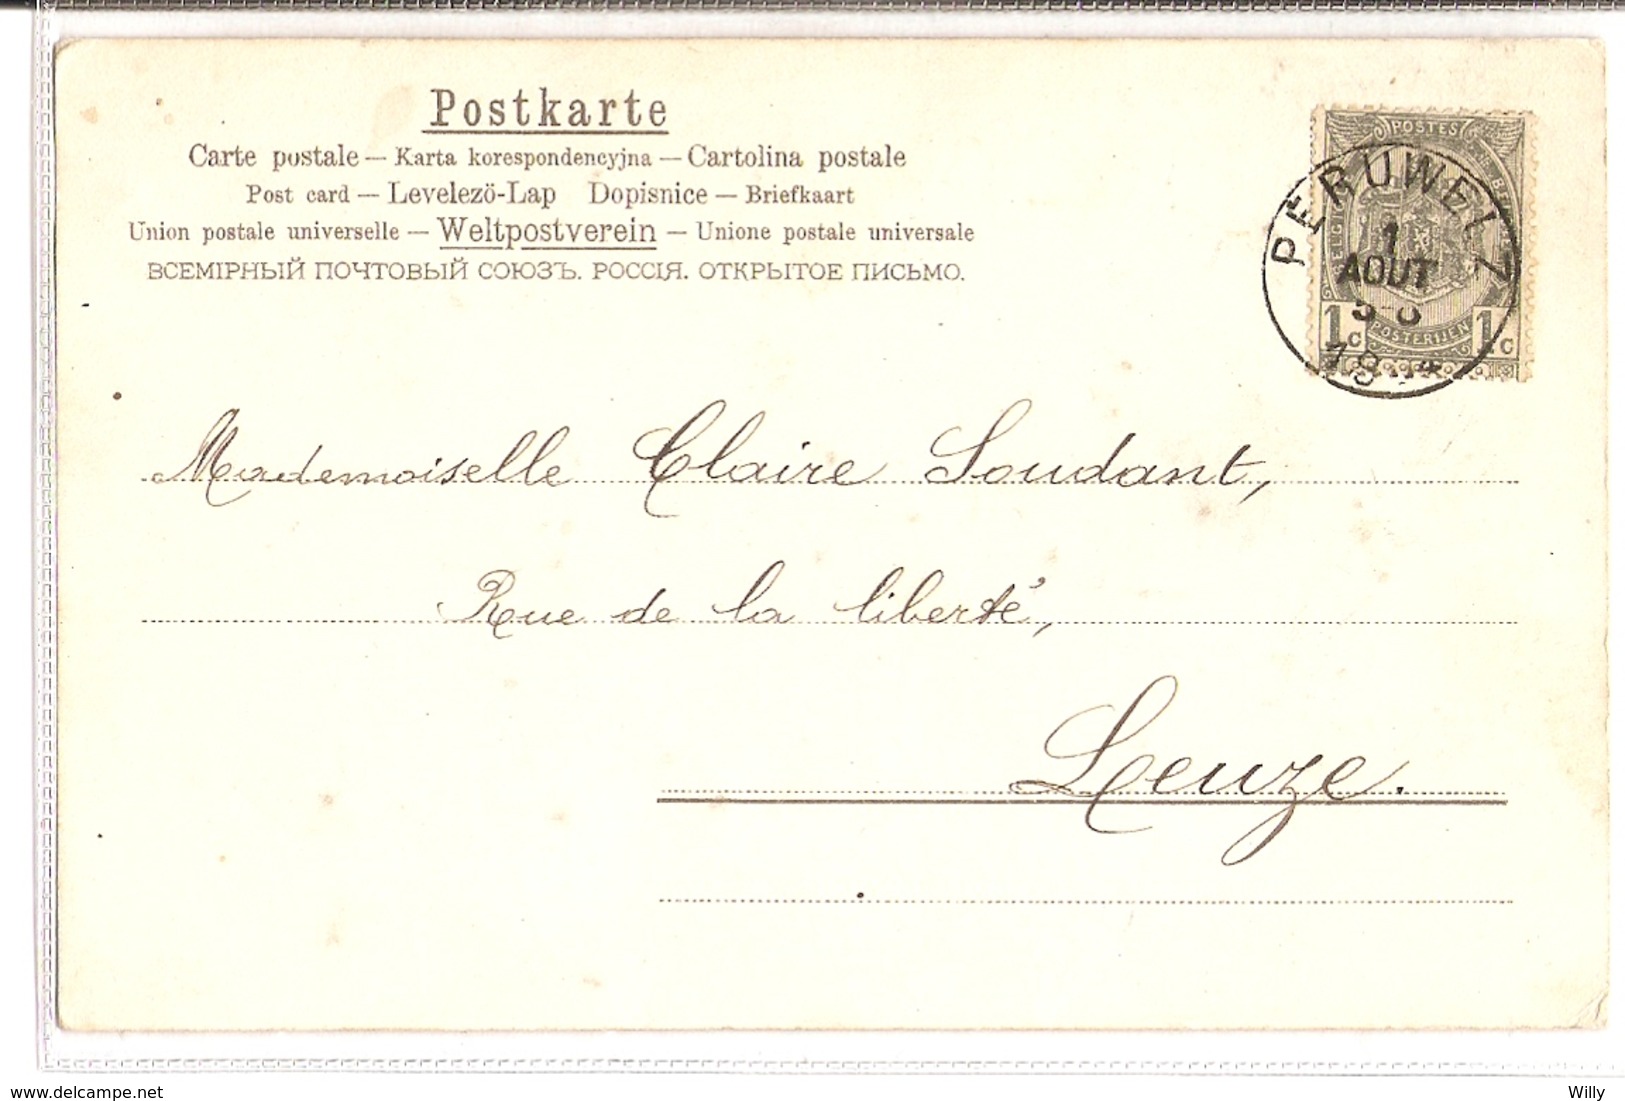 Postkarte
Carte postale — Karta korespondencyjna — Cartolina postale
Post card — Levelezö-Lap Dopisnice — Briefkaart
Union postale universelle — Weltpostverein — Unione postale universale
ВСЕМІРНЫЙ ПОЧТОВЫЙ СОЮЗЪ. РОССІЯ. ОТКРЫТОЕ ПИСЬМО.
POSTES
PERUWELZ
1
AOUT
1c POSTERIJEN 1c
Mademoiselle Claire Soudant,
Rue de la liberté,
Leuze.
delcampe.net
Willy